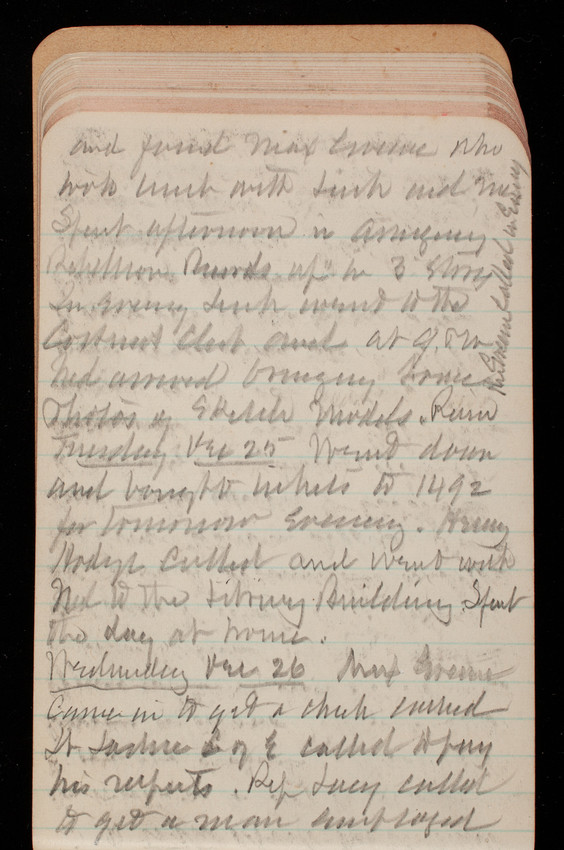 and found Max Greene who
took lunch with Link and me
Spent afternoon in arranging
Rebellion Records up in 3 Story
In evening Link went to the
Club and at 9.
Ned arrived bringing Some
Photos of Sketch Models. Rain
Tuesday Dec 25 Went down
and bought tickets to 1492
for tomorrow Evening. Henry
Hodge called and went with
Ned to the Library Building Spent
the day at home.
Wednesday Dec 26 Max Greene
came in to get a check cashed
Lt C of E called to pay
his respects. Rep Lacey called
to get a man employed
Greene called in Evening